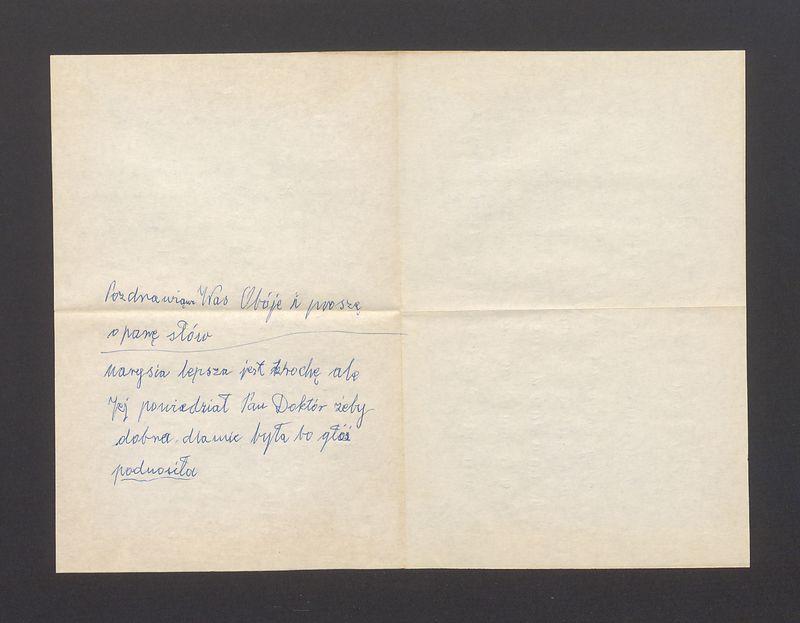 Pozdrawiam Was Obóje i proszę
o parę słów
Marysia lepsza jest trochę ale
Jej powiedział Pan Doktór żeby
dobra dlamie była bo głos
podnosiła